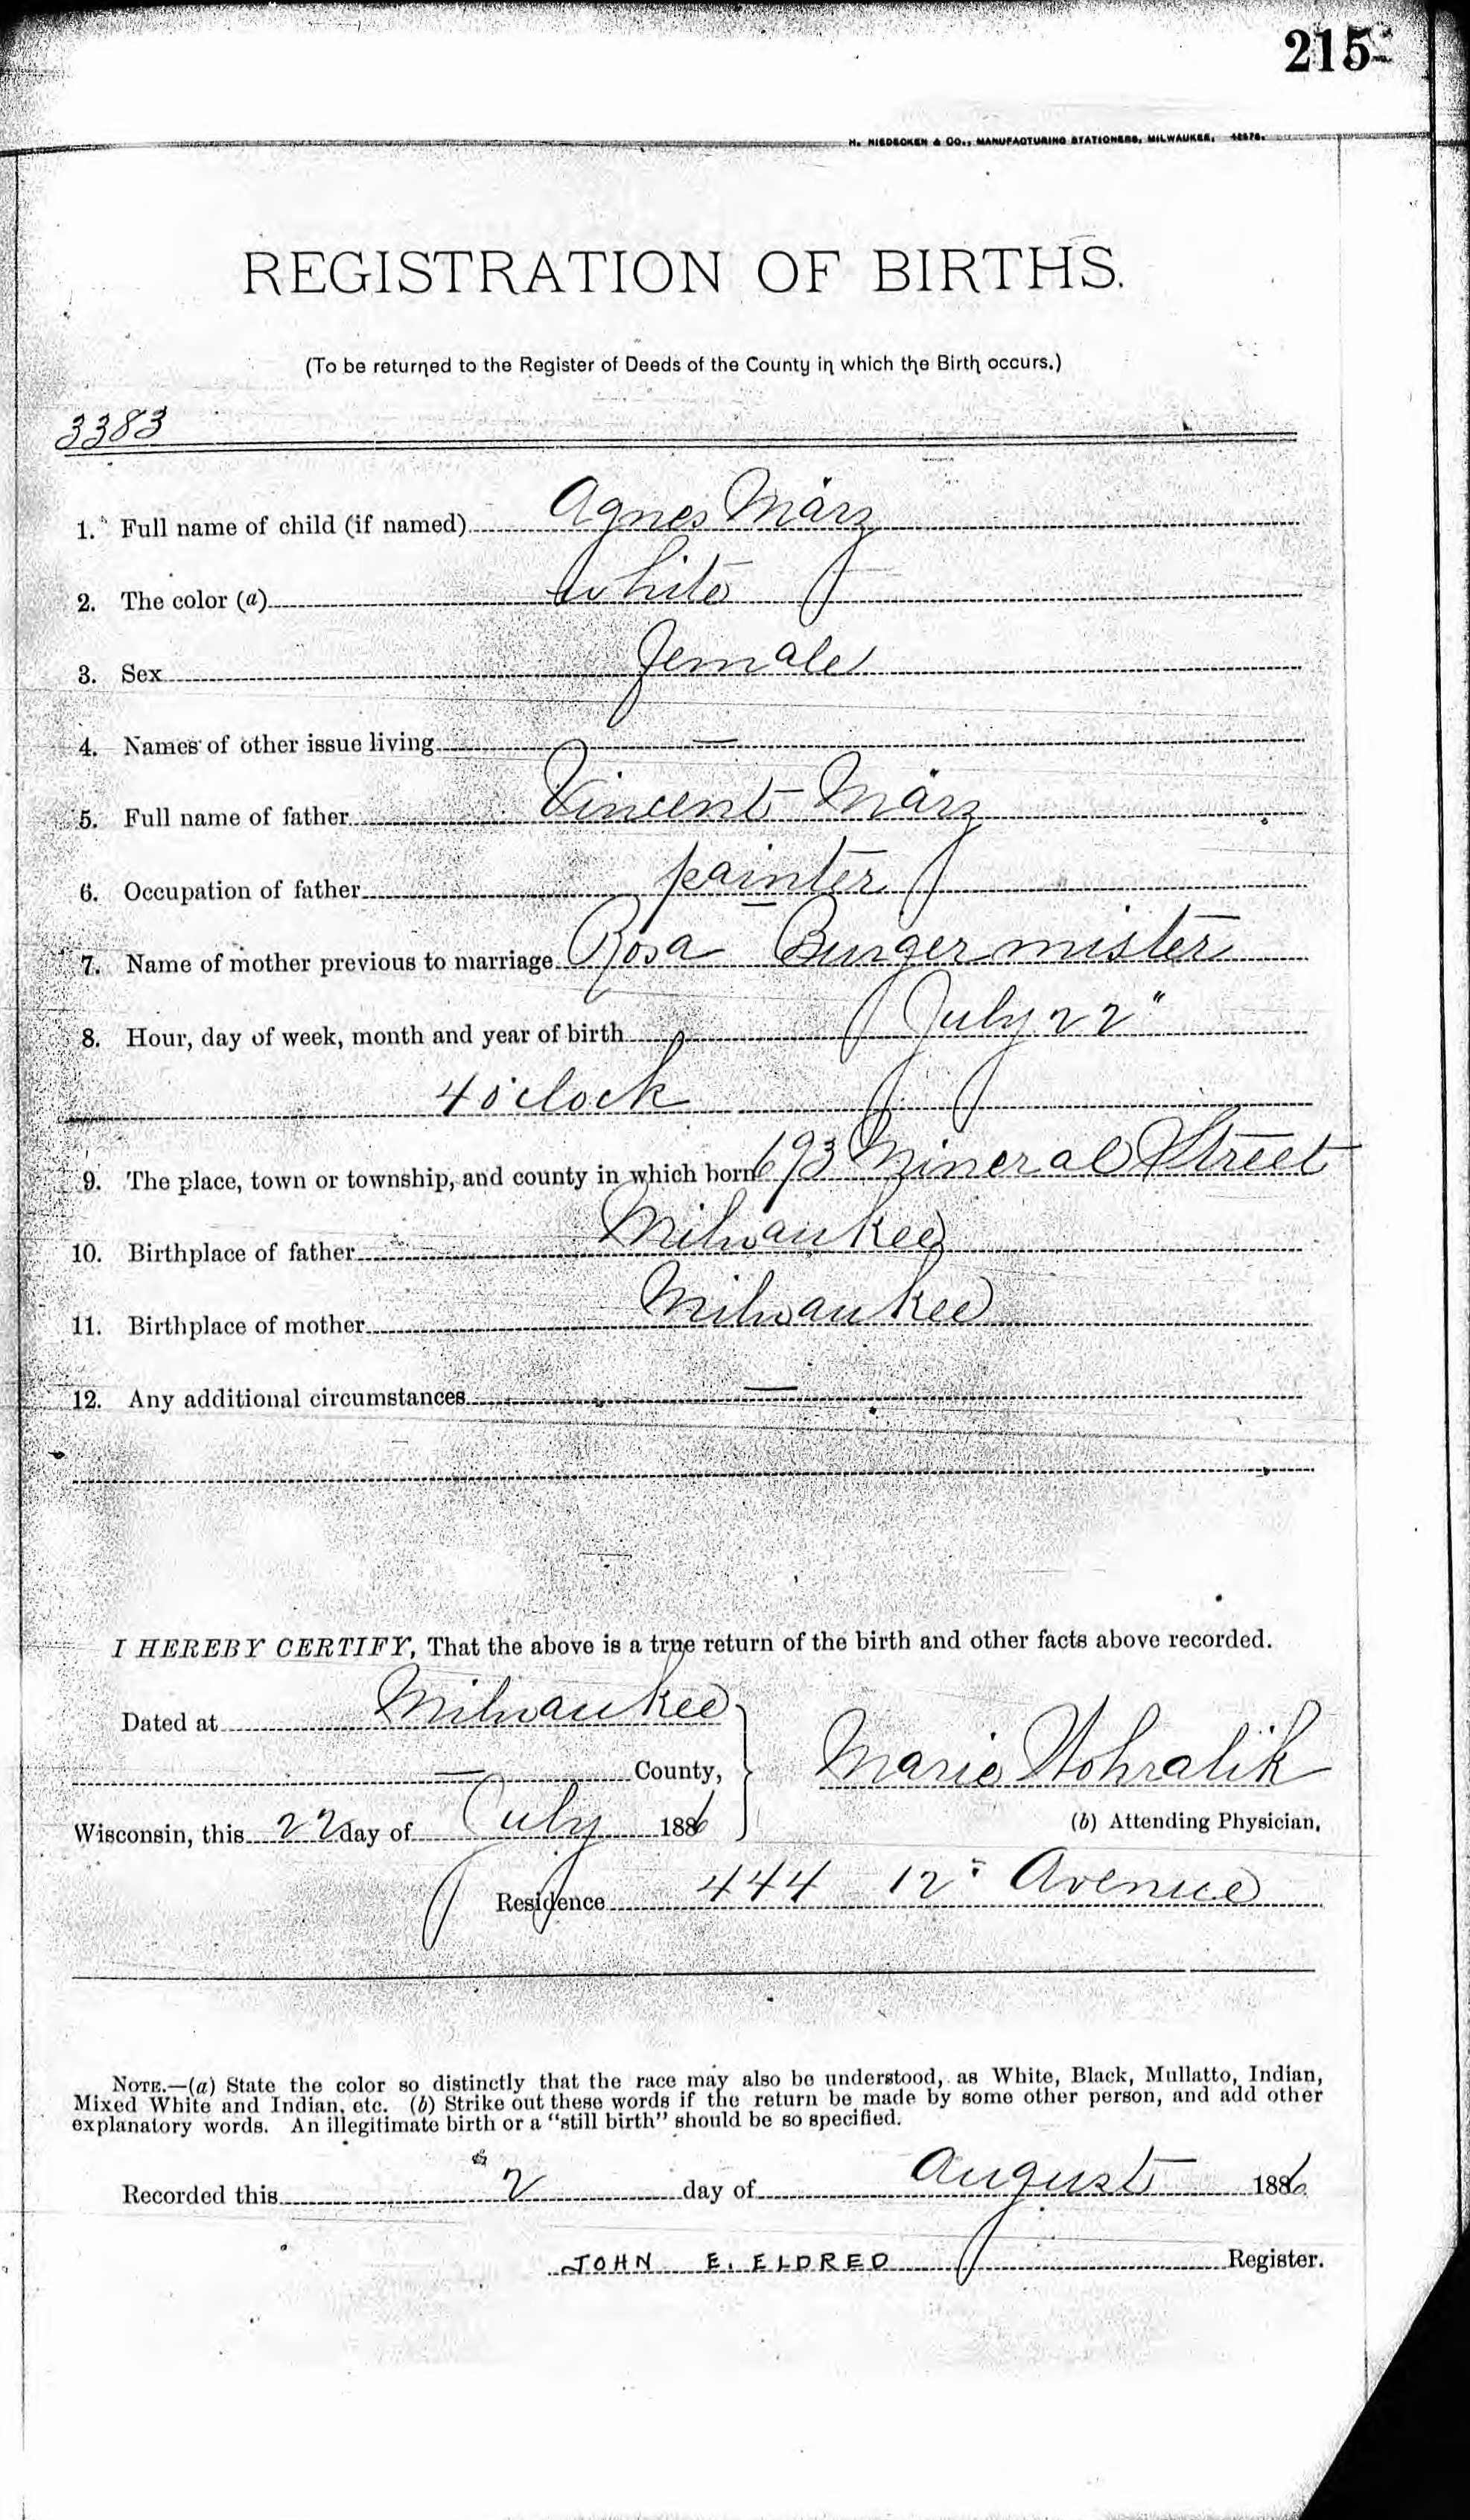 215
H. NIEDECKEN & CO., MANUFACTURING STATIONERS, MILWAUKEE.
REGISTRATION OF BIRTHS.
(To be returned to the Register of Deeds of the County in which the Birth occurs.)
3383
1. Full name of child (if named) Agnes März
2. The color (a) white
3. Sex female
4. Names of other issue living —
5. Full name of father Vincent März
6. Occupation of father painter
7. Name of mother previous to marriage Rosa Burgermister
8. Hour, day of week, month and year of birth July 22"
4 o'clock
9. The place, town or township, and county in which born 693 Mineral Street
10. Birthplace of father Milwaukee
11. Birthplace of mother Milwaukee
12. Any additional circumstances —
I HEREBY CERTIFY, That the above is a true return of the birth and other facts above recorded.
Dated at Milwaukee
— County,
Marie
Wisconsin, this 22 day of July 1886
(b) Attending Physician,
Residence 444 12" Avenue
NOTE.—(a) State the color so distinctly that the race may also be understood, as White, Black, Mullatto, Indian,
Mixed White and Indian, etc. (b) Strike out these words if the return be made by some other person, and add other
explanatory words. An illegitimate birth or a "still birth" should be so specified.
Recorded this 2 day of August 1886
JOHN E. ELDRED Register.